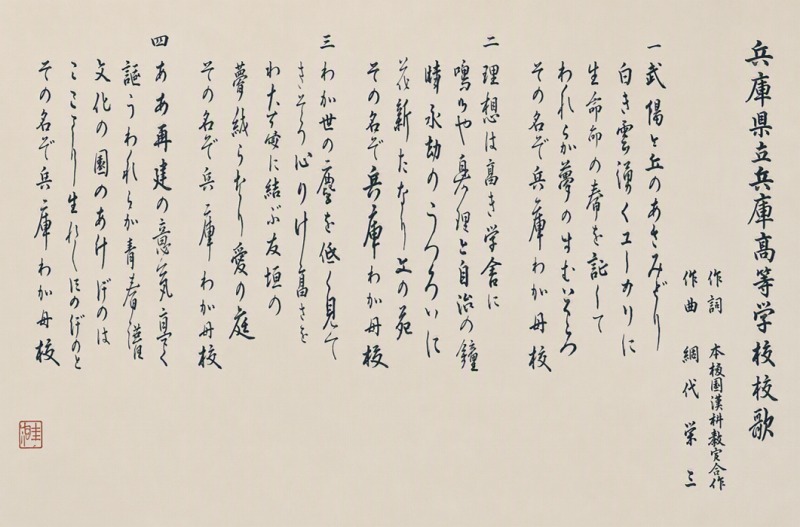 兵庫県立兵庫高等学校校歌
作詞 本校国漢科教官合作
作曲 網代栄三
一 武陽ヶ丘のあさみどり
白き雲湧くユーカリに
生命の春を託して
われらが夢の
その名ぞ兵庫わが母校
二 理想は高き学舎に
鳴るや真理と自治の鐘
時永劫のうつろいに
花新たなり上の苑
その名ぞ兵庫わが母校
三 わが世の塵を低く見て
心の
に結ぶ友垣の
夢絨らなり愛の庭
その名ぞ兵庫わが母校
四 ああ再建の意気高く
謳うわれらが青春譜
文化の園のあけぼのは
ここより生れしほのぼのと
その名ぞ兵庫わが母校